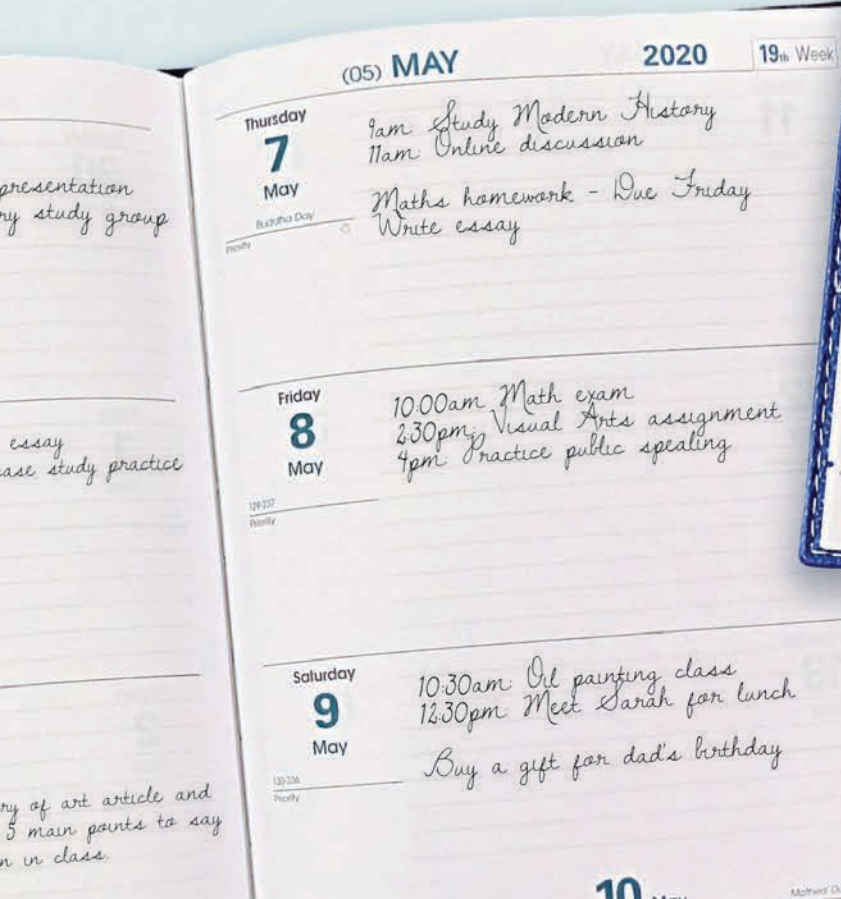 presentation
ry study group
essay
ase study practice
ry of art article and
5 main points to say
n in class.
(05) MAY 2020 19th Week
Thursday
7
May
Buddha Day
Priority
9am: Study Modern History
11am: Online discussion
Maths homework - Due Friday
Write essay
Friday
8
May
129-237
Priority
10:00am Math exam
2:30pm: Visual Arts assignment
4pm: Practice public spealing
Saturday
9
May
130-236
Priority
10:30am: Oil painting class
12:30pm: Meet Sarah for lunch
Buy a gift for dad's birthday
10 May
Mothers'